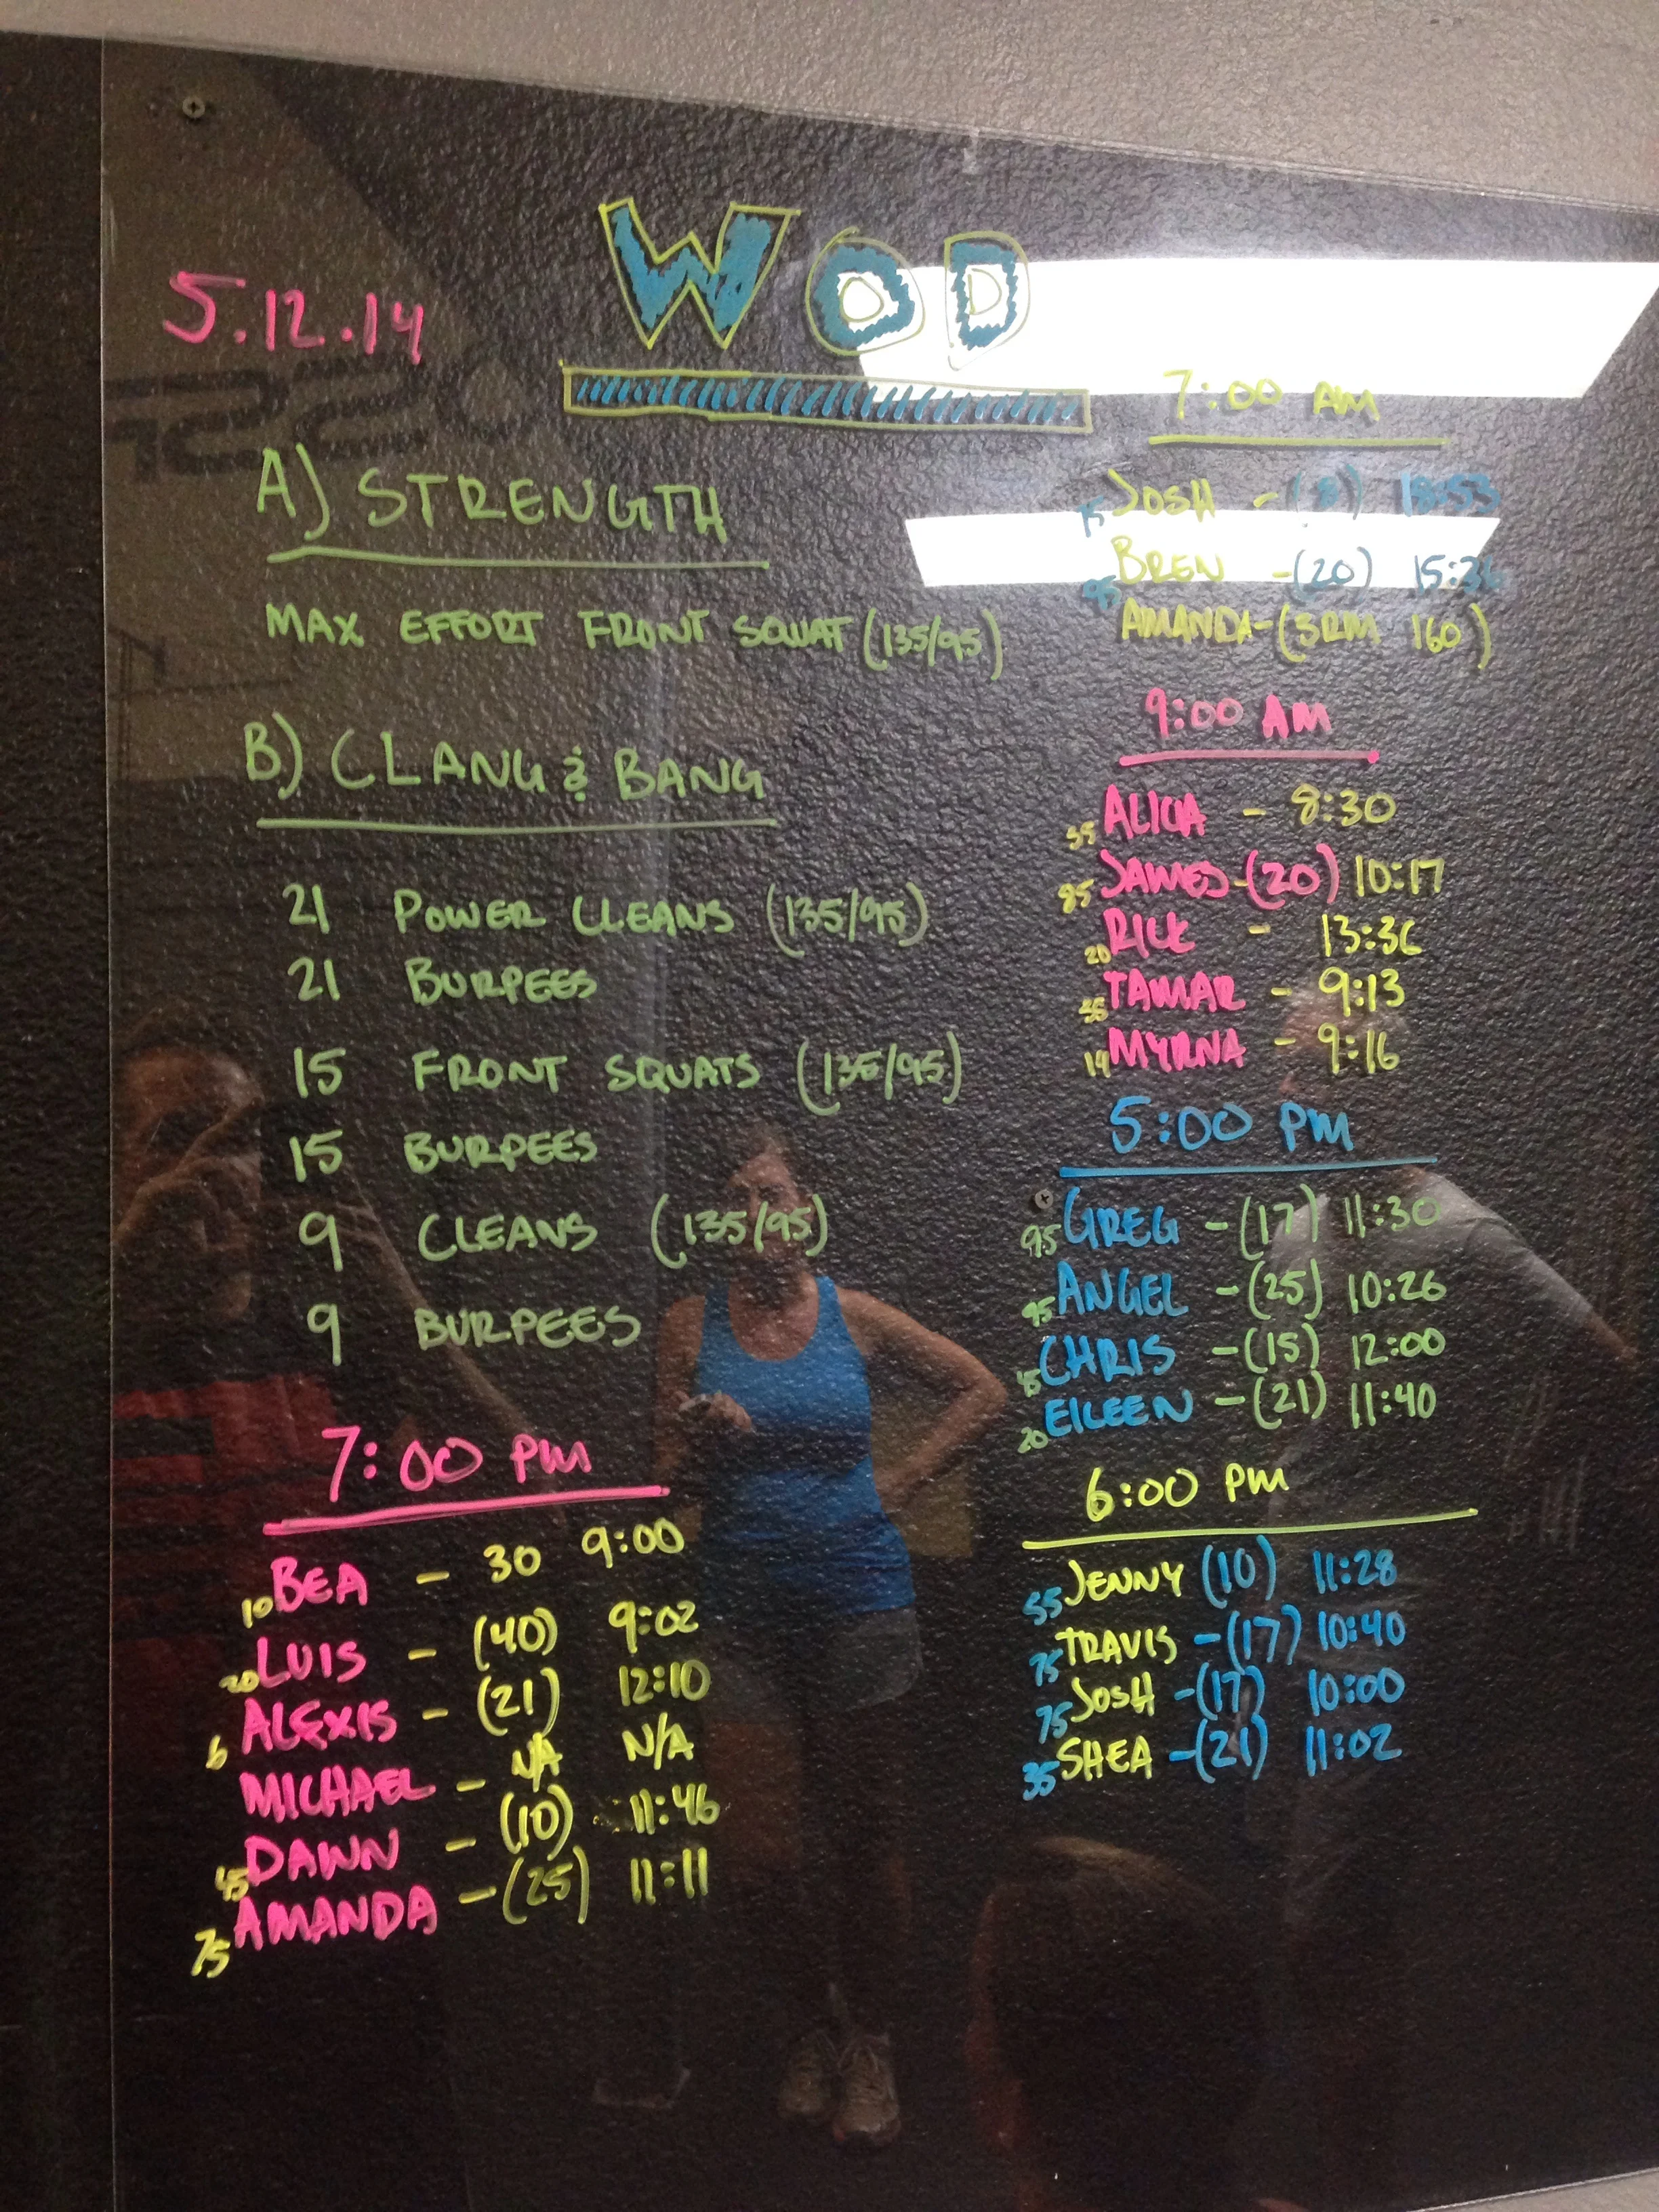 5.12.14
WOD
A) STRENGTH
MAX EFFORT FRONT SQUAT (135/95)
B) CLANG & BANG
21 POWER CLEANS (135/95)
21 BURPEES
15 FRONT SQUATS (135/95)
15 BURPEES
9 CLEANS (135/95)
9 BURPEES
7:00 PM
10 BEA - 30 9:00
20 LUIS - (40) 9:02
6 ALEXIS - (21) 12:10
MICHAEL - N/A N/A
45 DAWN - (10) 11:46
75 AMANDA - (25) 11:11
7:00 AM
75 JOSH - (8) 18:53
95 BREN - (20) 15:36
AMANDA - (3RM 160)
9:00 AM
35 ALICIA - 8:30
85 JAMES - (20) 10:17
20 RICK - 13:36
35 TAMAR - 9:13
19 MYRNA - 9:16
5:00 PM
95 GREG - (17) 11:30
95 ANGEL - (25) 10:26
CHRIS - (15) 12:00
20 EILEEN - (21) 11:40
6:00 PM
55 JENNY (10) 11:28
75 TRAVIS - (17) 10:40
75 JOSH - (17) 10:00
35 SHEA - (21) 11:02